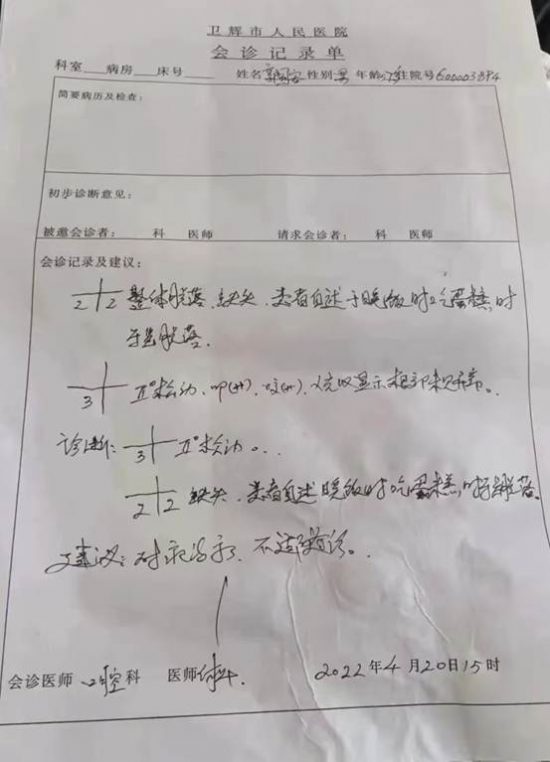 卫辉市人民医院
会诊记录单
科室 病房 床号 姓名 性别 男 年龄 住院号600003894
简要病历及检查：
初步诊断意见：
被邀会诊者： 科 医师 请求会诊者： 科 医师
会诊记录及建议：
2 2 整体脱落、缺失、患者自述于晚饭时吃蛋糕时
脱落.
3 Ⅱ°松动、 X光显示根部
诊断： 3 Ⅱ°松动。
2 2 缺失、患者自述晚饭时吃蛋糕时脱落
建议：对症治疗、不适
会诊医师 口腔科 医师 2022年4月20日15时